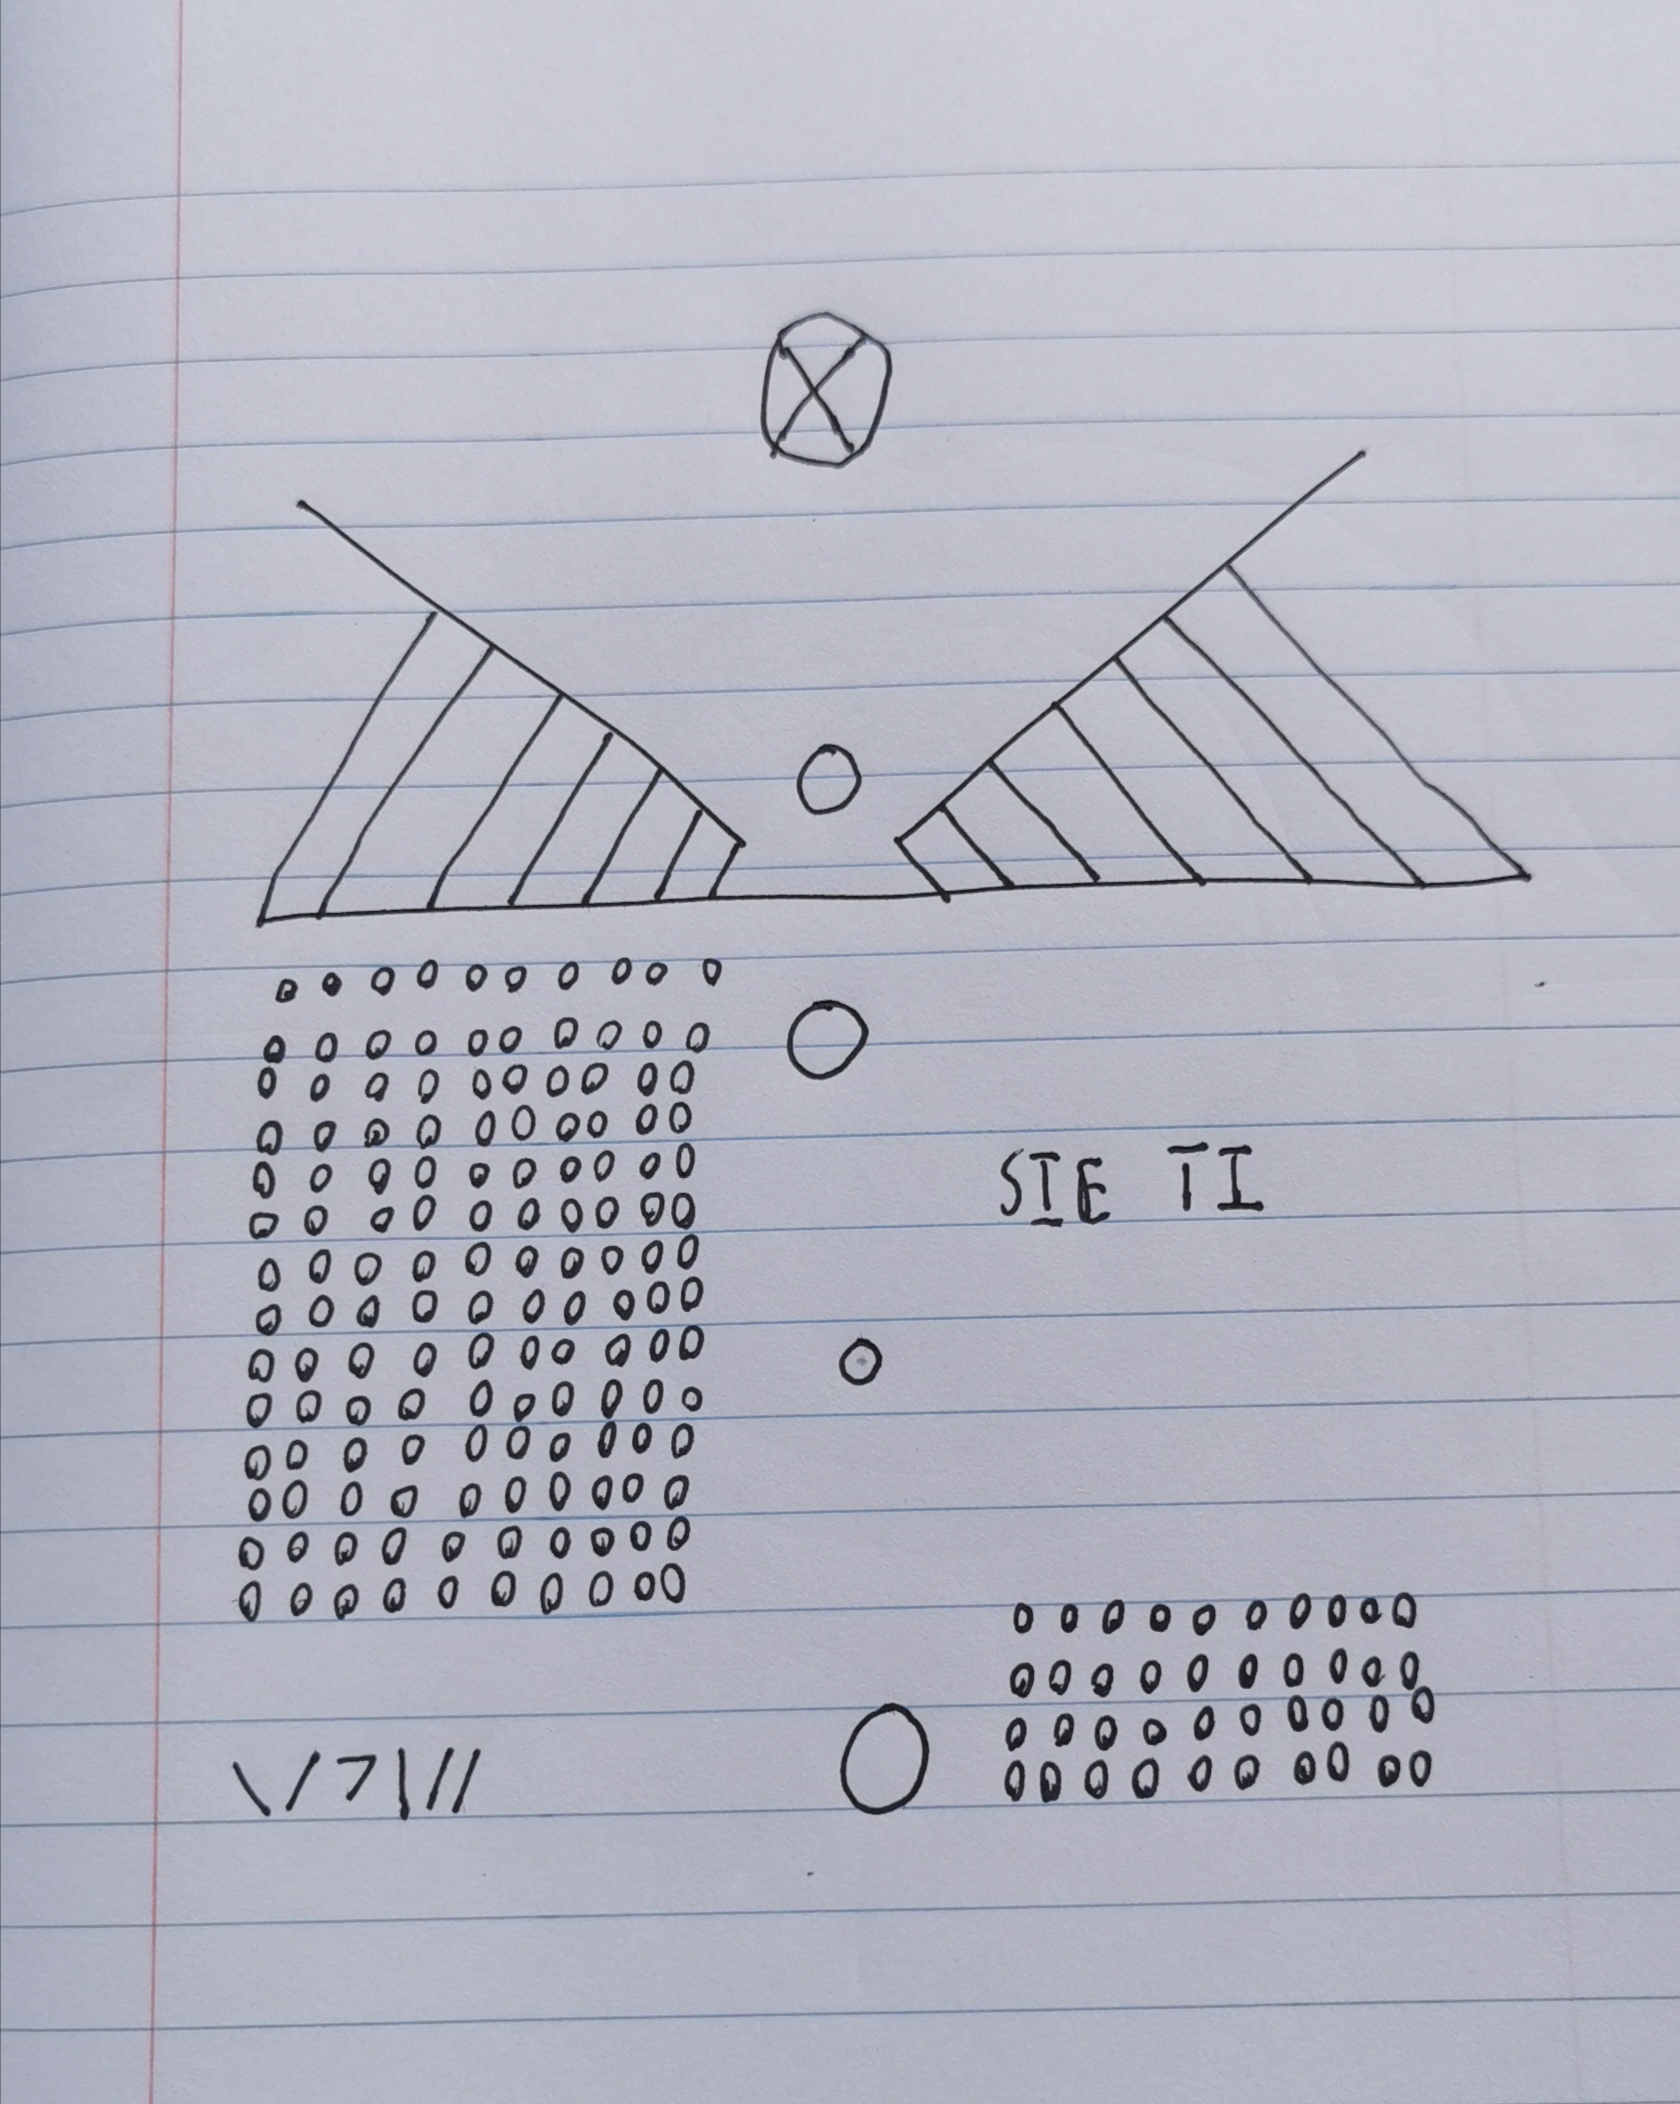 SIE TI